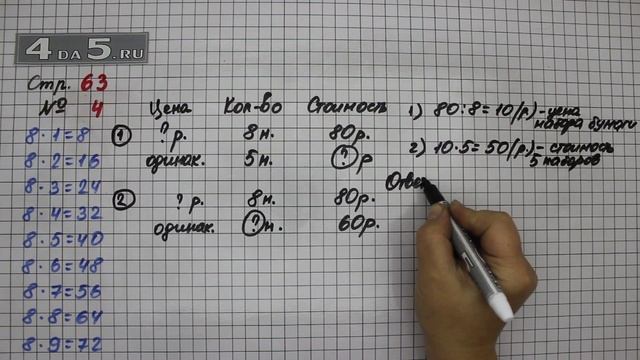 4 DA 5.RU
Стр. 63
№ 4
8 · 1 = 8
8 · 2 = 16
8 · 3 = 24
8 · 4 = 32
8 · 5 = 40
8 · 6 = 48
8 · 7 = 56
8 · 8 = 64
8 · 9 = 72
Цена Кол-во Стоимость
1 ? р. 8 н. 80р.
одинак. 5 н. ? р
2 ? р. 8н. 80р.
одинак. ? н. 60р.
1) 80 : 8 = 10 (р) - цена
набора бумаги
2) 10 · 5 = 50 (р.) - стоимость
5 наборов
Ответ